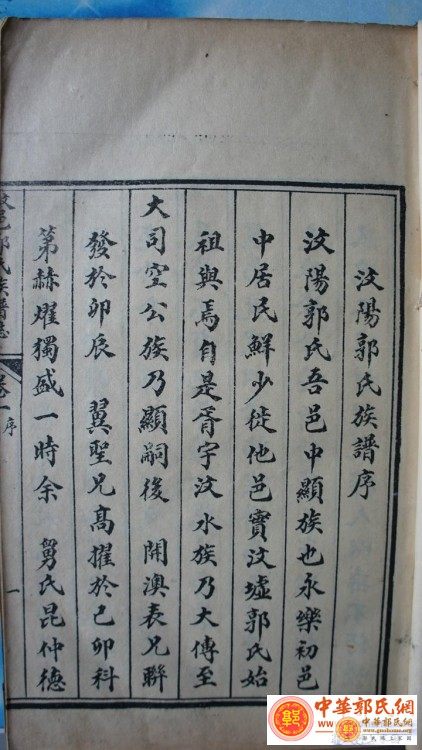 汶陽郭氏族譜序
汶陽郭氏吾邑中顯族也永樂初邑
中居民鮮少徙他邑實汶墟郭氏始
祖與焉自是胥宇汶水族乃大傳至
大司空公族乃顯嗣後 開澳表兄聯
發於卯辰 翼聖兄高擢於己卯科
第赫燿獨盛一時余 舅氏昆仲德
汶邑郭氏族譜誌
卷一序
一
中華郭氏網